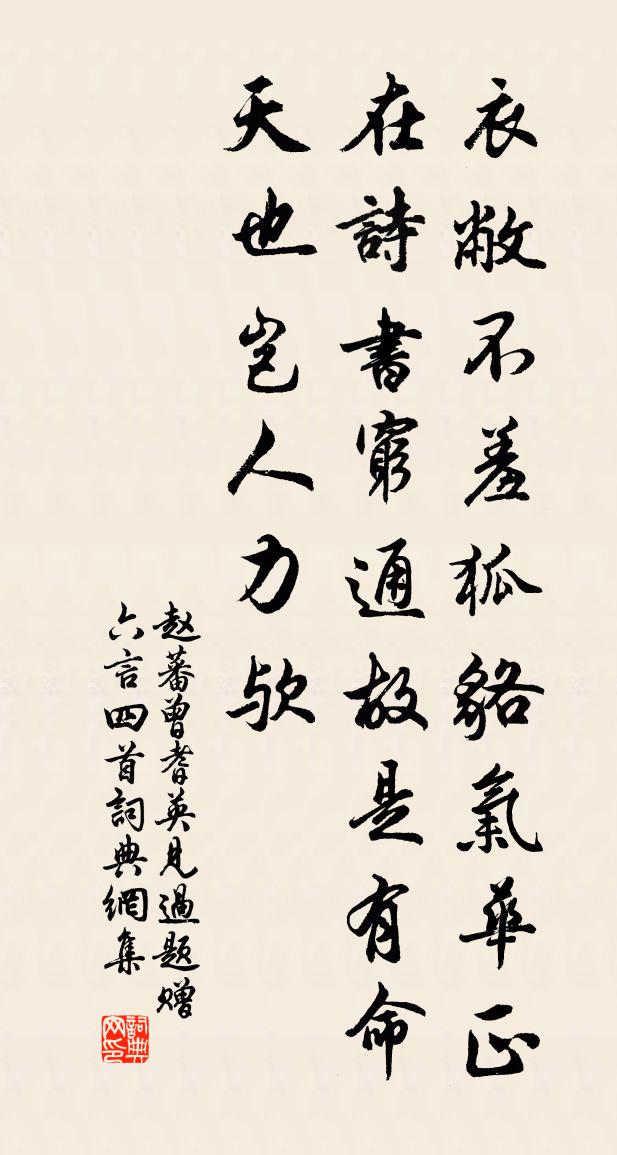 衣敝不羞狐貉氣華正
在詩書窮通故是有命
天也豈人力歟
赵蕃曾耆英見過題赠
六言四首詞典網集
詞典网印